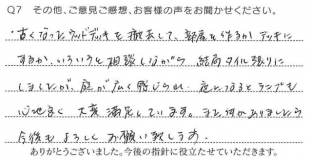 Q7 その他、ご意見ご感想、お客様の声をお聞かせください。
・古くなったウッドデッキを撤去して、部屋をつくるか デッキに
するか、いろいろと相談しながら 結局タイル張りに
しましたが、庭が広く感じられ 夜になるとランプも
心地良く 大変 満足しています。また何かありましたら
今後もよろしくお願い致します。
ありがとうございました。今後の指針に役立たせていただきます。